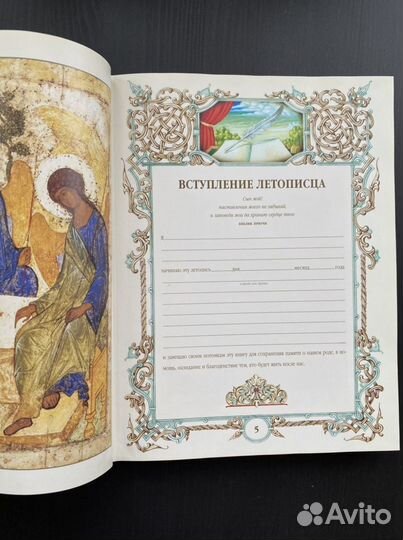 ВСТУПЛЕНИЕ ЛЕТОПИСЦА
Сын мой!
наставления моего не забывай,
и заповеди мои да хранит сердце твое.
КНИГА ПРИТЧ
Я
начинаю эту летопись дня месяца года
и завещаю своим потомкам эту книгу для сохранения памяти о нашем роде, в по-
мощь, назидание и благоденствие тем, кто будет жить после нас.
5
Avito